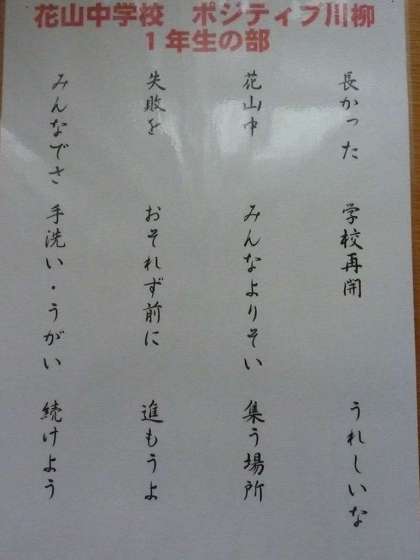 花山中学校　ポジティブ川柳
１年生の部
長かった　学校再開　うれしいな
花山中　みんなよりそい　集う場所
失敗を　おそれず前に　進もうよ
みんなでさ　手洗い・うがい　続けよう